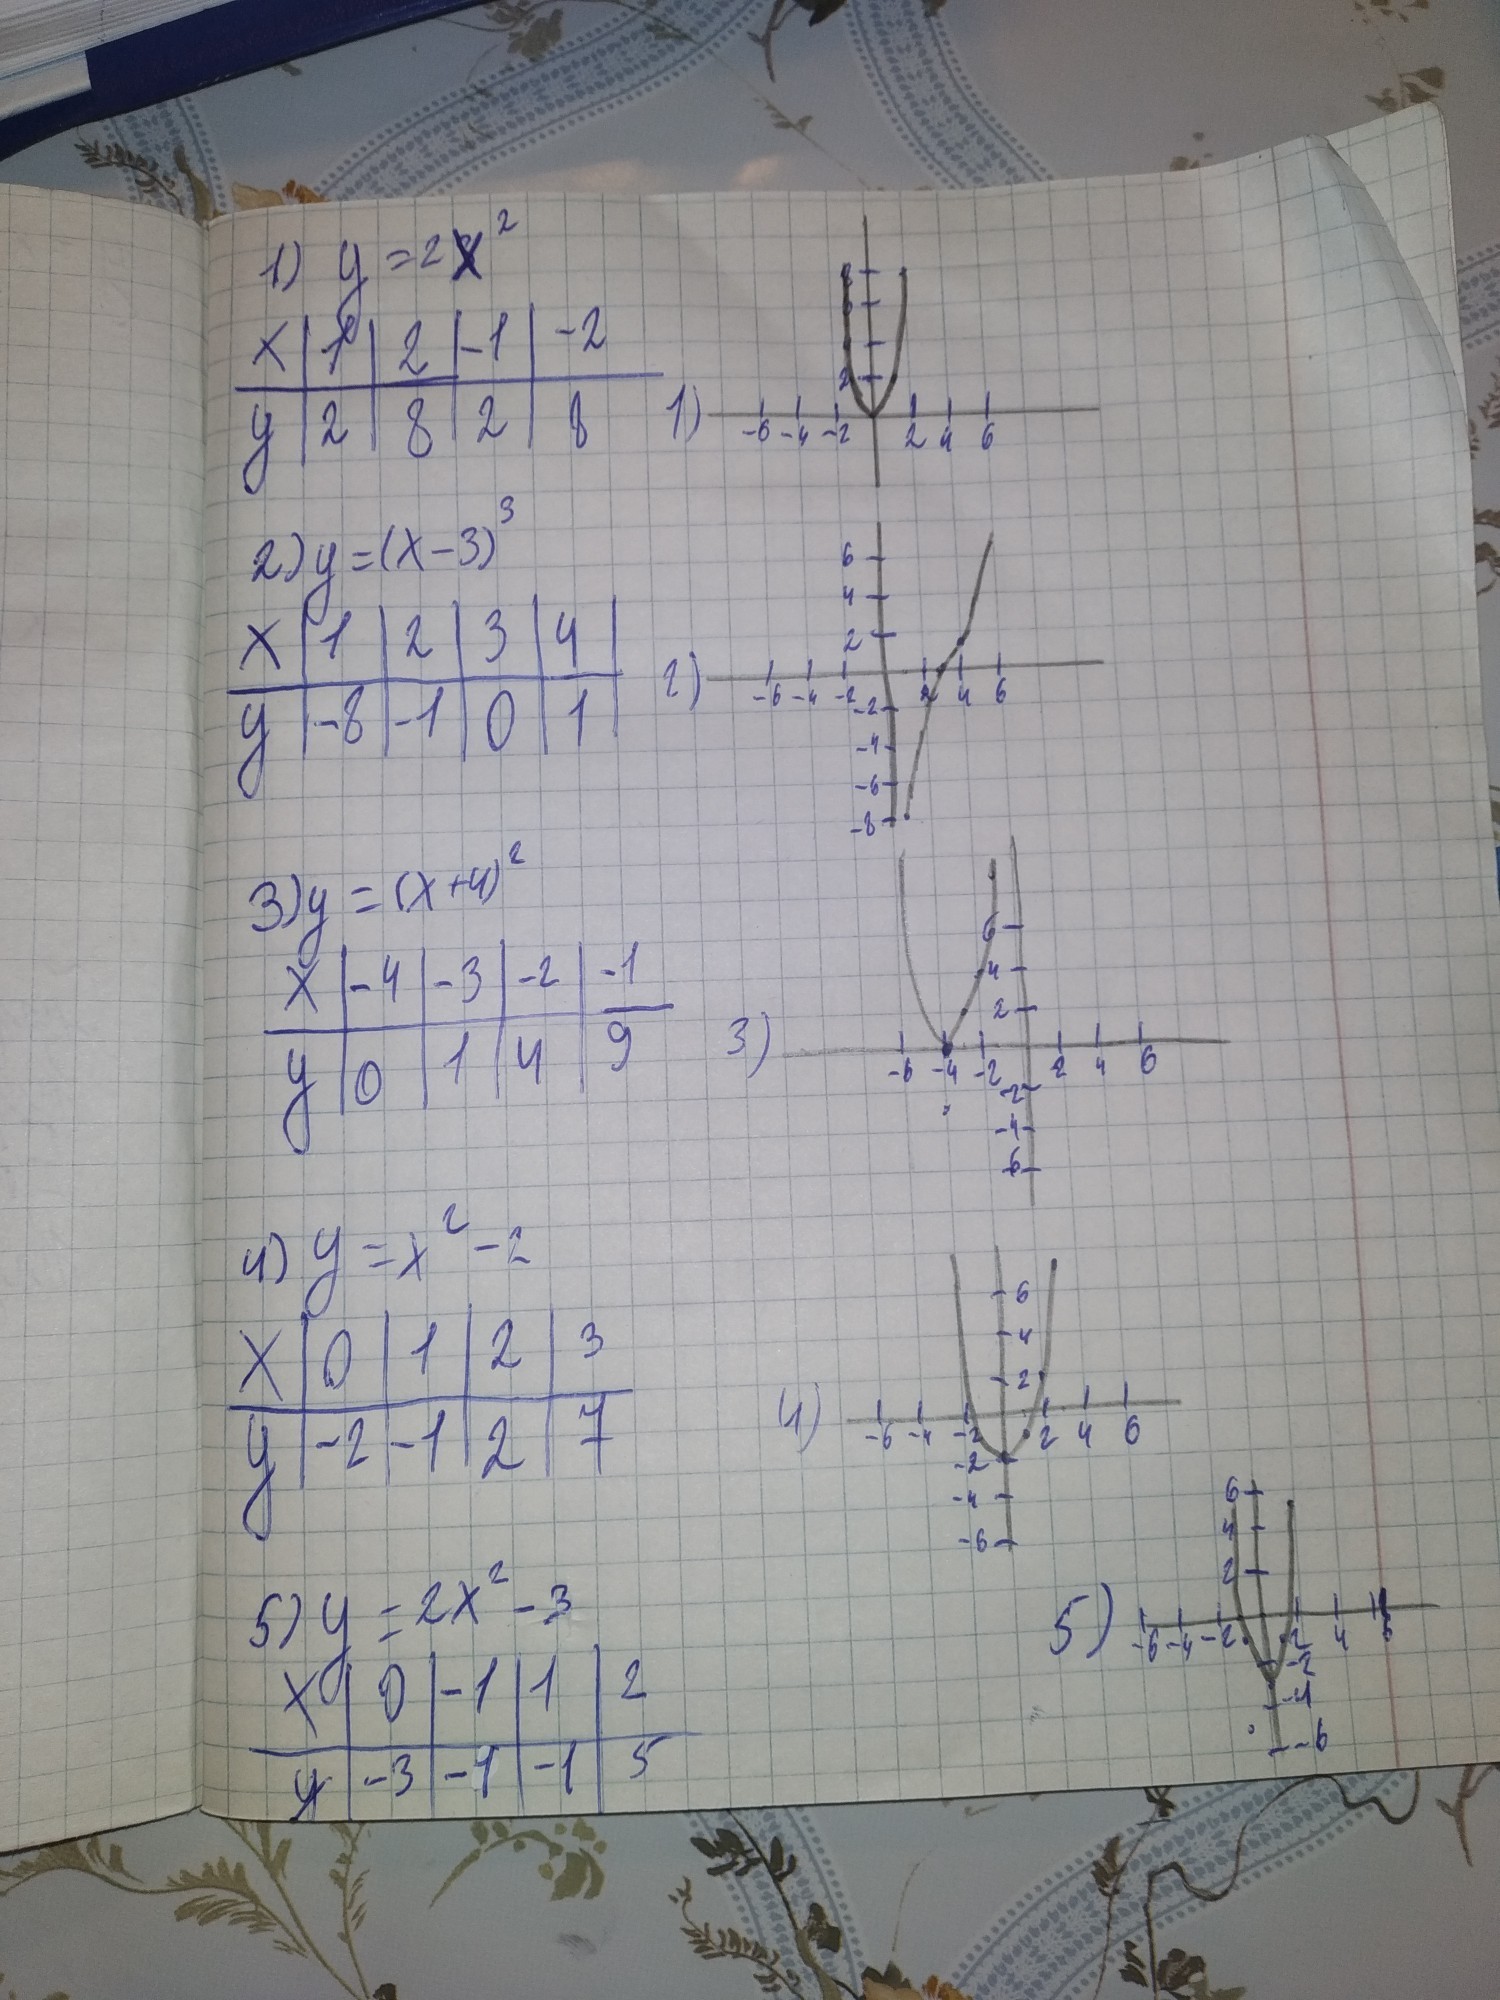 1) y = 2x²
x | 1 | 2 | -1 | -2
y | 2 | 8 | 2 | 8
1)
8
6
2
-6 -4 -2 2 4 6
2) y = (x-3)³
x | 1 | 2 | 3 | 4 |
y | -8 | -1 | 0 | 1 |
2)
6
4
2
-6 -4 -2 2 4 6
-2
-4
-6
-8
3) y = (x+4)²
x | -4 | -3 | -2 | -1
y | 0 | 1 | 4 | 9
3)
6
4
2
-6 -4 -2 2 4 6
-2
-4
6
4) y = x² - 2
x | 0 | 1 | 2 | 3
y | -2 | -1 | 2 | 7
4)
6
4
2
-6 -4 -2 2 4 6
-2
-4
-6
5) y = 2x² - 3
x | 0 | -1 | 1 | 2
y | -3 | -1 | -1 | 5
5)
6
4
2
-6 -4 -2 2 4 6
-2
-4
-6